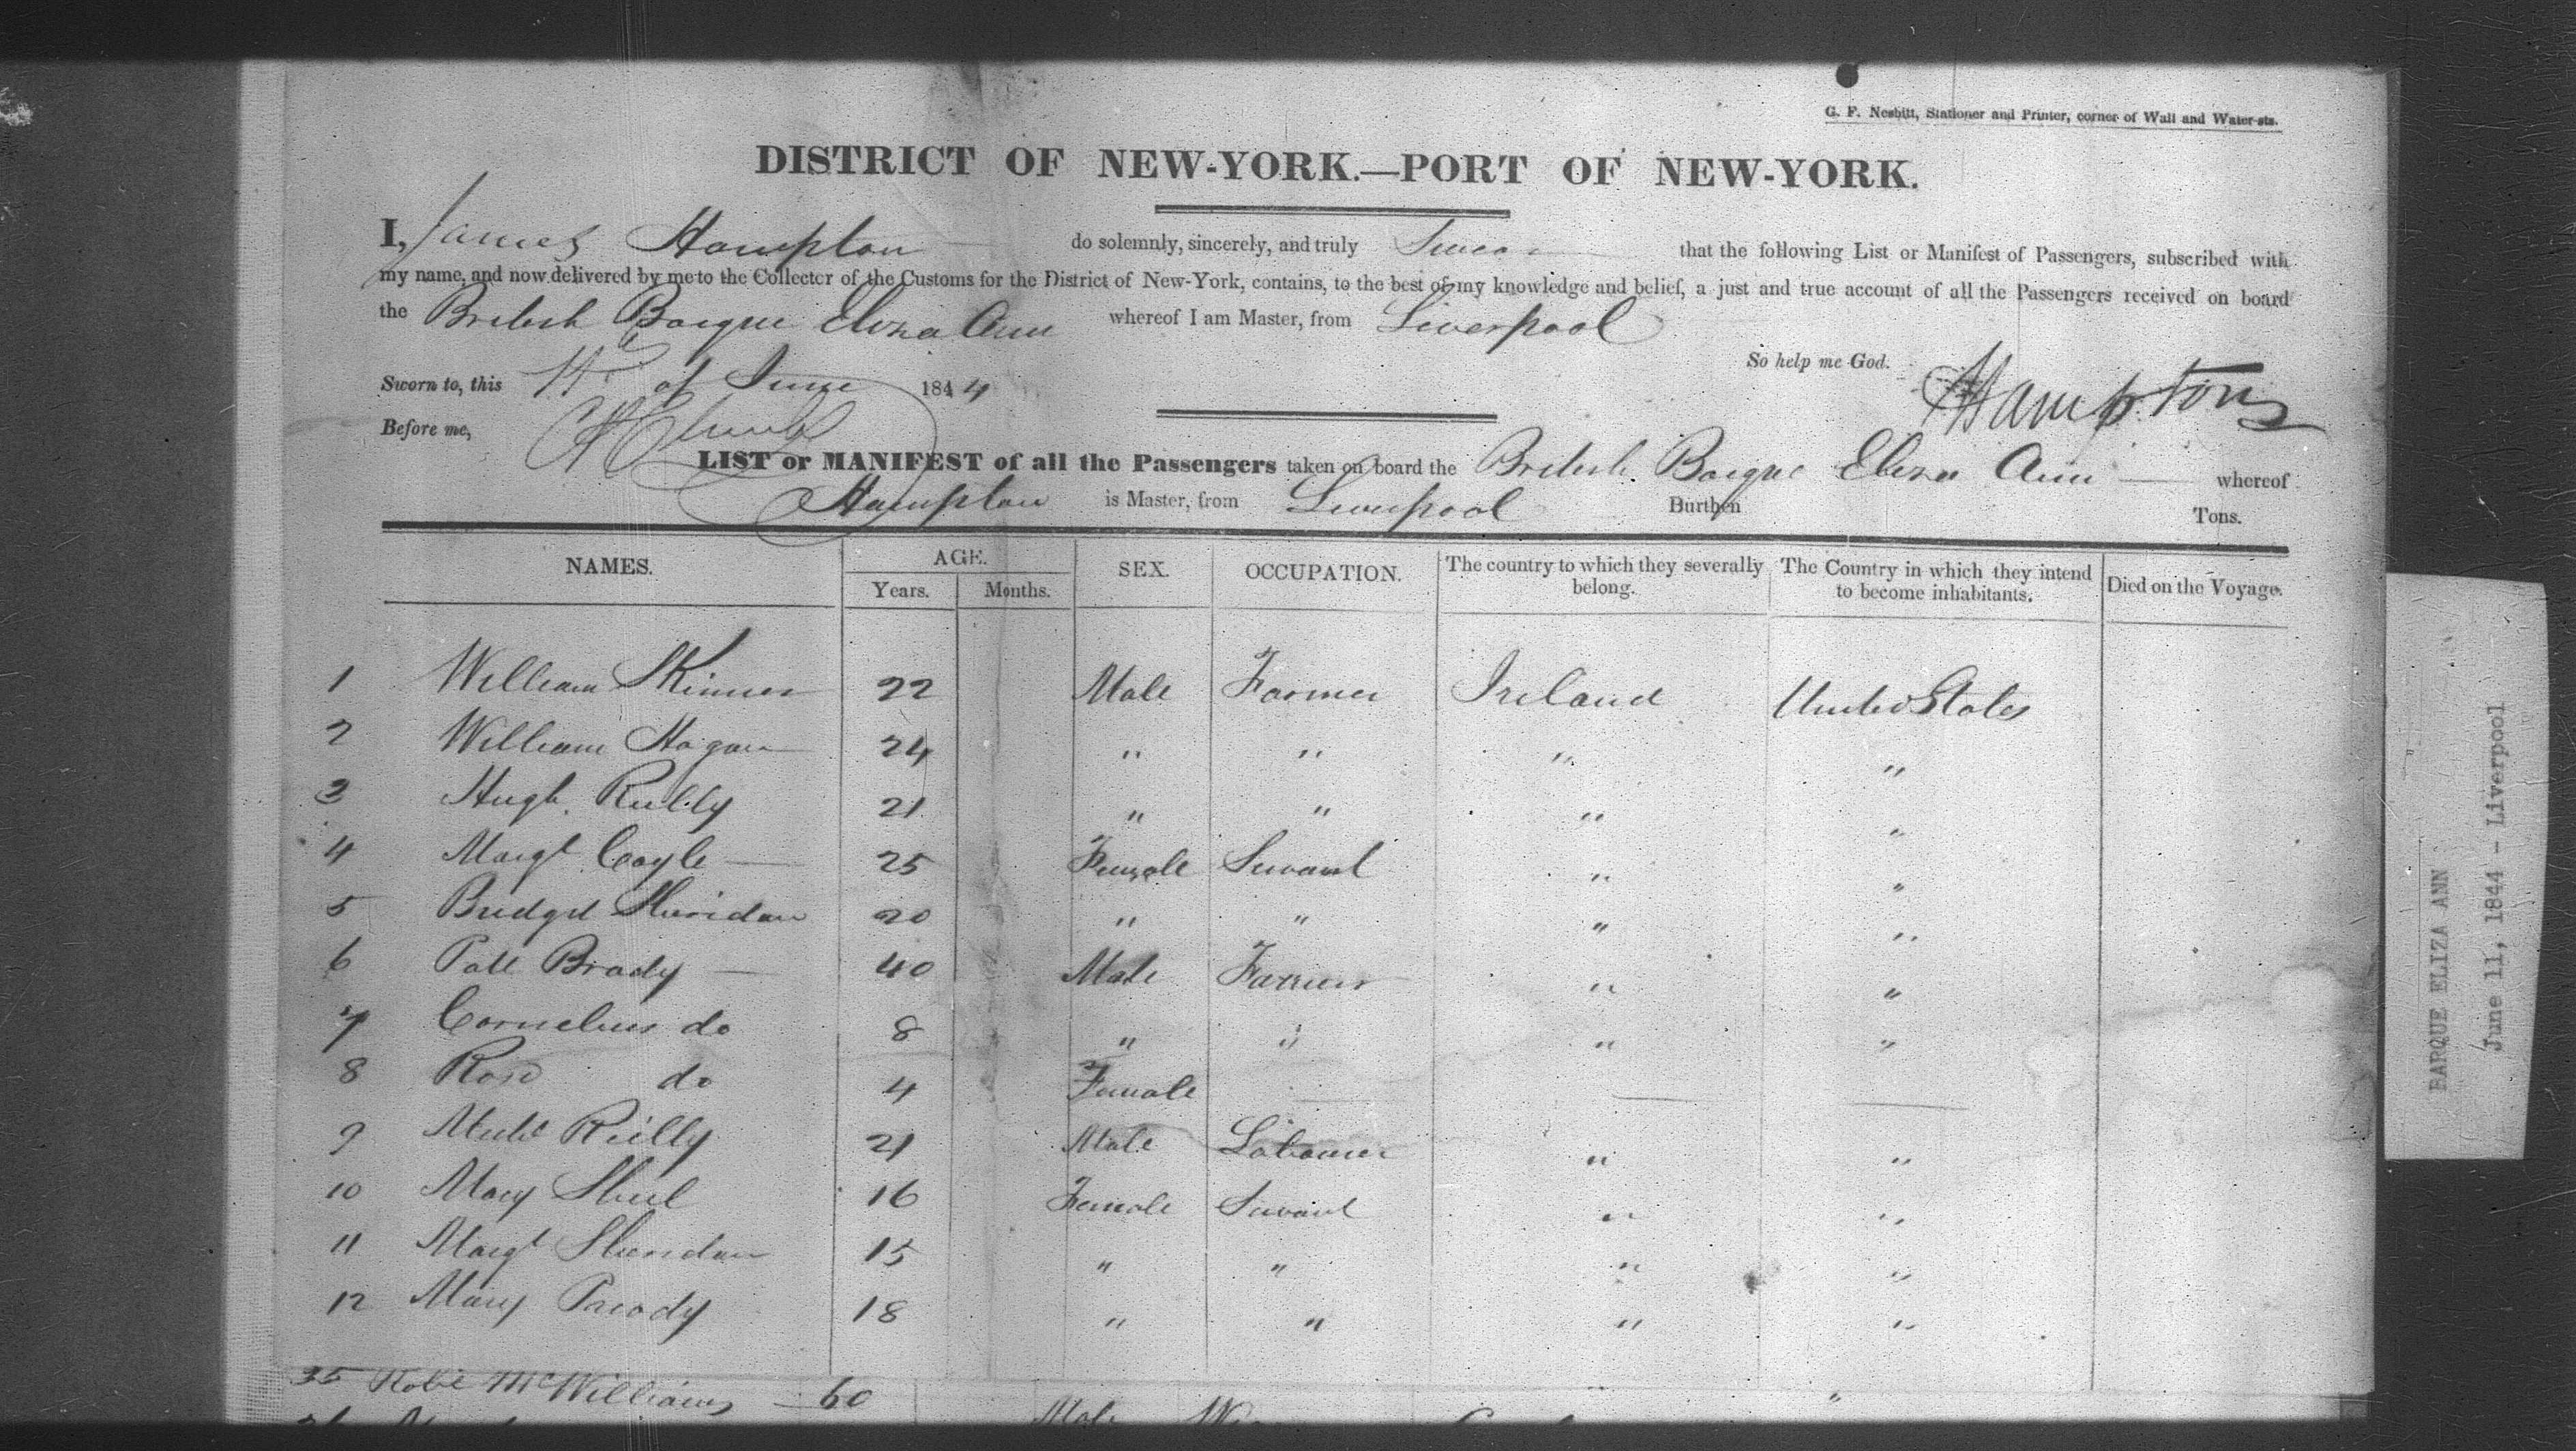 G. F. Nesbitt, Stationer and Printer, corner of Wall and Water-sts.
DISTRICT OF NEW-YORK.—PORT OF NEW-YORK.
I, James Hampton do solemnly, sincerely, and truly Swear that the following List or Manifest of Passengers, subscribed with
my name, and now delivered by me to the Collector of the Customs for the District of New-York, contains, to the best of my knowledge and belief, a just and true account of all the Passengers received on board
the British Barque Eliza Ann whereof I am Master, from Liverpool
So help me God.
Sworn to, this 11 of June 1844
Hampton
Before me,
LIST or MANIFEST of all the Passengers taken on board the British Barque Eliza Ann whereof
Hampton is Master, from Liverpool Burthen Tons.
NAMES. AGE. SEX. OCCUPATION. The country to which they severally belong. The Country in which they intend to become inhabitants. Died on the Voyage.
Years. Months.
1 William Skinner 22 Male Farmer Ireland United States
2 William Hagan 24 " " " "
3 Hugh Reilly 21 " " " "
4 Margt Coyle — 25 Female Servant " "
5 Bridget Sheridan 20 " " " "
6 Patt Brady — 40 Male Farmer " "
7 Cornelius do 8 " " " "
8 Rose do 4 Female — — —
9 Michl Reilly 21 Male Labourer " "
10 Mary 16 Female Servant " "
11 Margt Sheridan 15 " " " "
12 Mary 18 " " " "
35 Robt McWilliams — 60 "
Male
BARQUE ELIZA ANN
June 11, 1844 - Liverpool